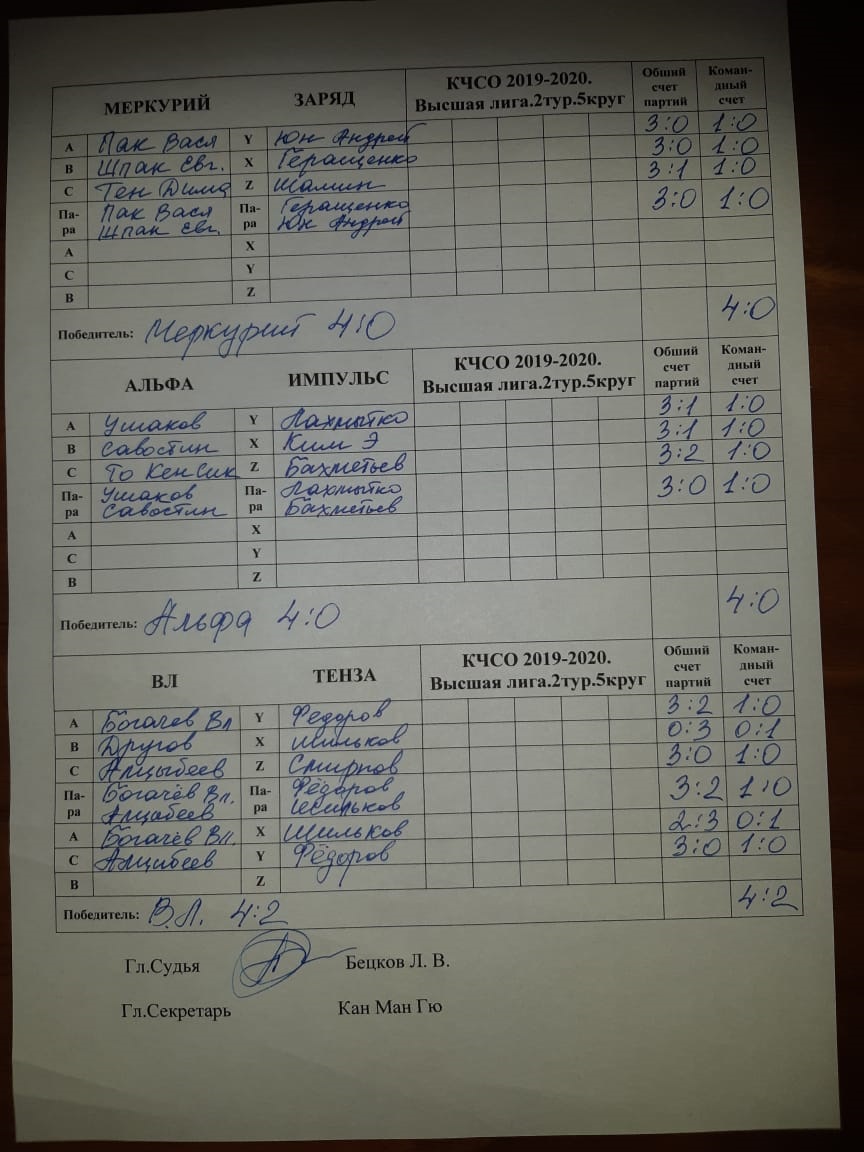 МЕРКУРИЙ ЗАРЯД КЧСО 2019-2020. Высшая лига.2тур.5круг Общий счет партий Коман-дный счет
A Пак Вася Y Юн Андрей 3:0 1:0
B Шпак Евг. X Геращенко 3:0 1:0
C Тен Дима Z Шамин 3:1 1:0
Па-ра Пак Вася Па-ра Геращенко 3:0 1:0
Шпак Евг. Юн Андрей
A X
C Y
B Z
Победитель: Меркурий 4:0 4:0
АЛЬФА ИМПУЛЬС КЧСО 2019-2020. Высшая лига.2тур.5круг Общий счет партий Коман-дный счет
A Ушаков Y Лахмытко 3:1 1:0
B Савостин X Ким Э 3:1 1:0
C То Кен Сик Z Бахметьев 3:2 1:0
Па-ра Ушаков Па-ра Лахмытко 3:0 1:0
Савостин Бахметьев
A X
C Y
B Z
Победитель: Альфа 4:0 4:0
ВЛ ТЕНЗА КЧСО 2019-2020. Высшая лига.2тур.5круг Общий счет партий Коман-дный счет
A Богачев Вл Y Федоров 3:2 1:0
B Другов X Шильков 0:3 0:1
C Алцыбеев Z Смирнов 3:0 1:0
Па-ра Богачёв Вл. Па-ра Фёдоров 3:2 1:0
Алцабеев Шильков
A Богачёв Вл. X Шильков 2:3 0:1
C Алцибеев Y Фёдоров 3:0 1:0
B Z
Победитель: В.Л. 4:2 4:2
Гл.Судья Бецков Л. В.
Гл.Секретарь Кан Ман Гю